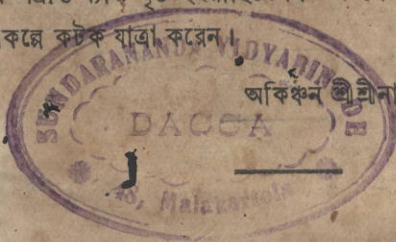 কল্পে কটক যাত্রা করেন।
অকিঞ্চন শ্রীশ্রীনা
SUNDARANANDA VIDYABINODE
DACCA
Malakartola